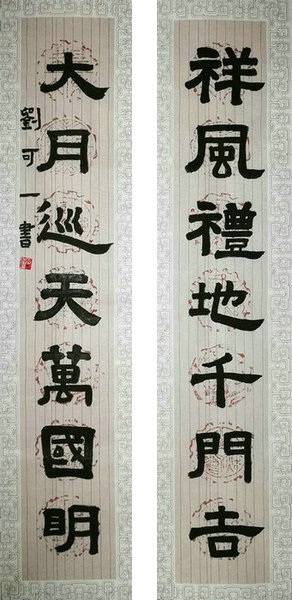 祥風禮地千門吉
大月巡天萬國明
劉可一書